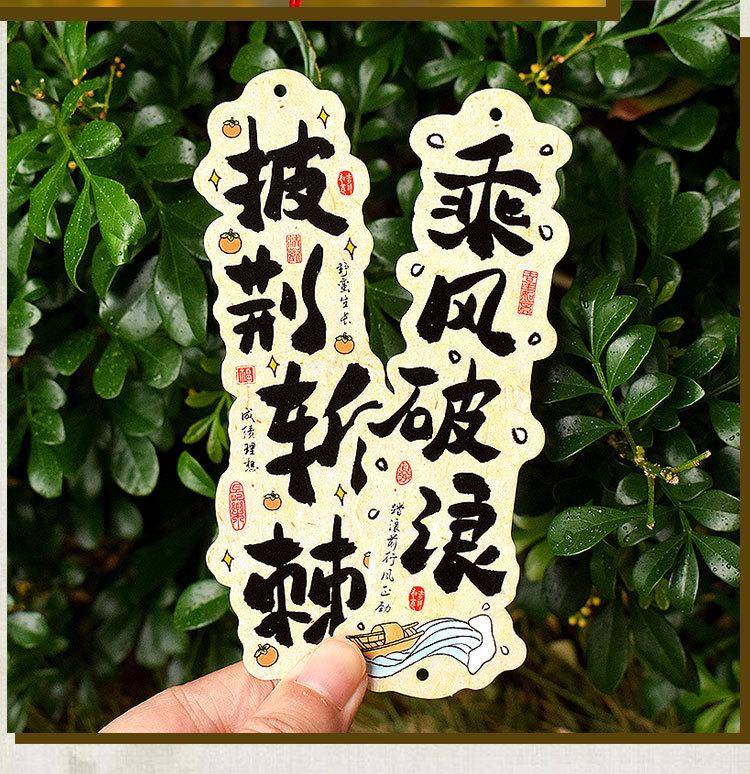 披荆斩棘
野蛮生长
成绩理想
乘风破浪
踏浪前行风正劲